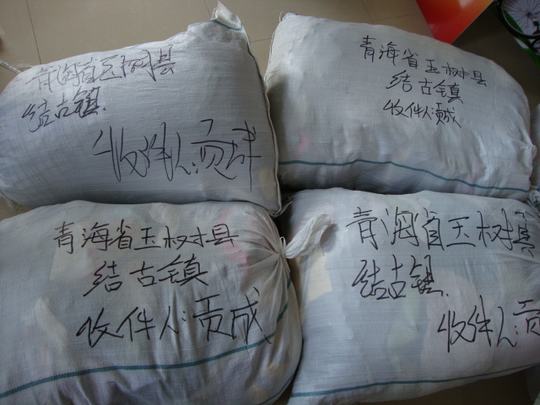 青海省玉树县
结古镇
收件人:贡成
青海省玉树县
结古镇
收件人:贡成
青海省玉树县
结古镇
收件人:贡成
青海省玉树县
结古镇
收件人:贡